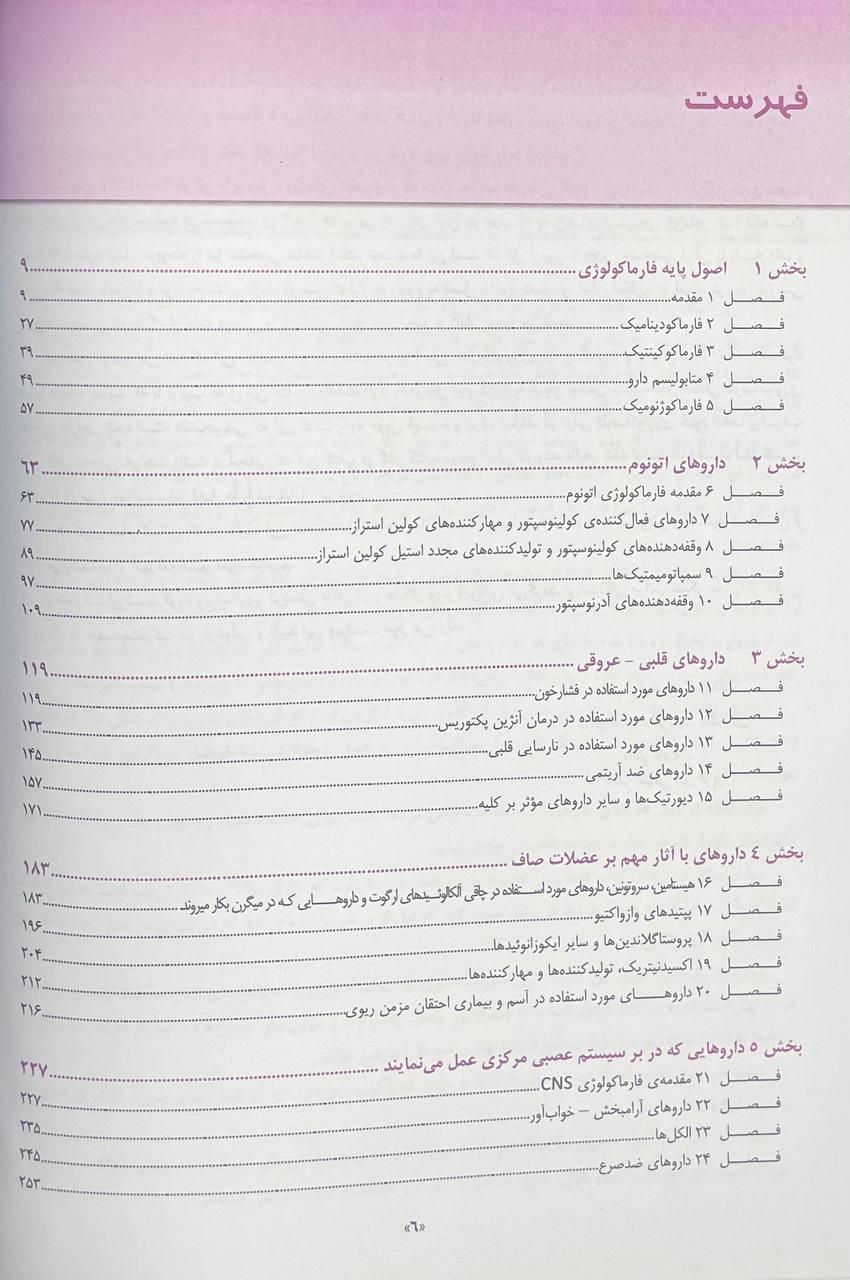 فهرست
بخش ۱ اصول پایه فارماکولوژی ........ ۹
فـــصـــل ۱ مقدمه ........ ۹
فـــصـــل ۲ فارماکودینامیک ........ ۲۷
فـــصـــل ۳ فارماکوکینتیک ........ ۳۹
فـــصـــل ۴ متابولیسم دارو ........ ۴۹
فـــصـــل ۵ فارماکوژنومیک ........ ۵۷
بخش ۲ داروهای اتونوم ........ ۶۳
فـــصـــل ۶ مقدمه فارماکولوژی اتونوم ........ ۶۳
فـــصـــل ۷ داروهای فعال‌کننده‌ی کولینوسپتور و مهارکننده‌های کولین استراز ........ ۷۷
فـــصـــل ۸ وقفه‌دهنده‌های کولینوسپتور و تولیدکننده‌های مجدد استیل کولین استراز ........ ۸۹
فـــصـــل ۹ سمپاتومیمتیک‌ها ........ ۹۷
فـــصـــل ۱۰ وقفه‌دهنده‌های آدرنوسپتور ........ ۱۰۹
بخش ۳ داروهای قلبی – عروقی ........ ۱۱۹
فـــصـــل ۱۱ داروهای مورد استفاده در فشارخون ........ ۱۱۹
فـــصـــل ۱۲ داروهای مورد استفاده در درمان آنژین پکتوریس ........ ۱۳۳
فـــصـــل ۱۳ داروهای مورد استفاده در نارسایی قلبی ........ ۱۴۵
فـــصـــل ۱۴ داروهای ضد آریتمی ........ ۱۵۷
فـــصـــل ۱۵ دیورتیک‌ها و سایر داروهای مؤثر بر کلیه ........ ۱۷۱
بخش ۴ داروهای با آثار مهم بر عضلات صاف ........ ۱۸۳
فـــصـــل ۱۶ هیستامین، سروتونین، داروهای مورد اســتفاده در چاقی آلکالوئـیدهای ارگوت و داروهــایی کـه در میگرن بکار میروند ........ ۱۸۳
فـــصـــل ۱۷ پپتیدهای وازواکتیو ........ ۱۹۶
فـــصـــل ۱۸ پروستاگلاندین‌ها و سایر ایکوزانوئیدها ........ ۲۰۴
فـــصـــل ۱۹ اکسیدنیتریک، تولیدکننده‌ها و مهارکننده‌ها ........ ۲۱۲
فـــصـــل ۲۰ داروهـــای مورد استفاده در آسم و بیماری احتقان مزمن ریوی ........ ۲۱۶
بخش ۵ داروهایی که در بر سیستم عصبی مرکزی عمل می‌نمایند ........ ۲۲۷
فـــصـــل ۲۱ مقدمه‌ی فارماکولوژی CNS ........ ۲۲۷
فـــصـــل ۲۲ داروهای آرامبخش – خواب‌آور ........ ۲۳۵
فـــصـــل ۲۳ الکل‌ها ........ ۲۴۵
فـــصـــل ۲۴ داروهای ضدصرع ........ ۲۵۳
«۶»